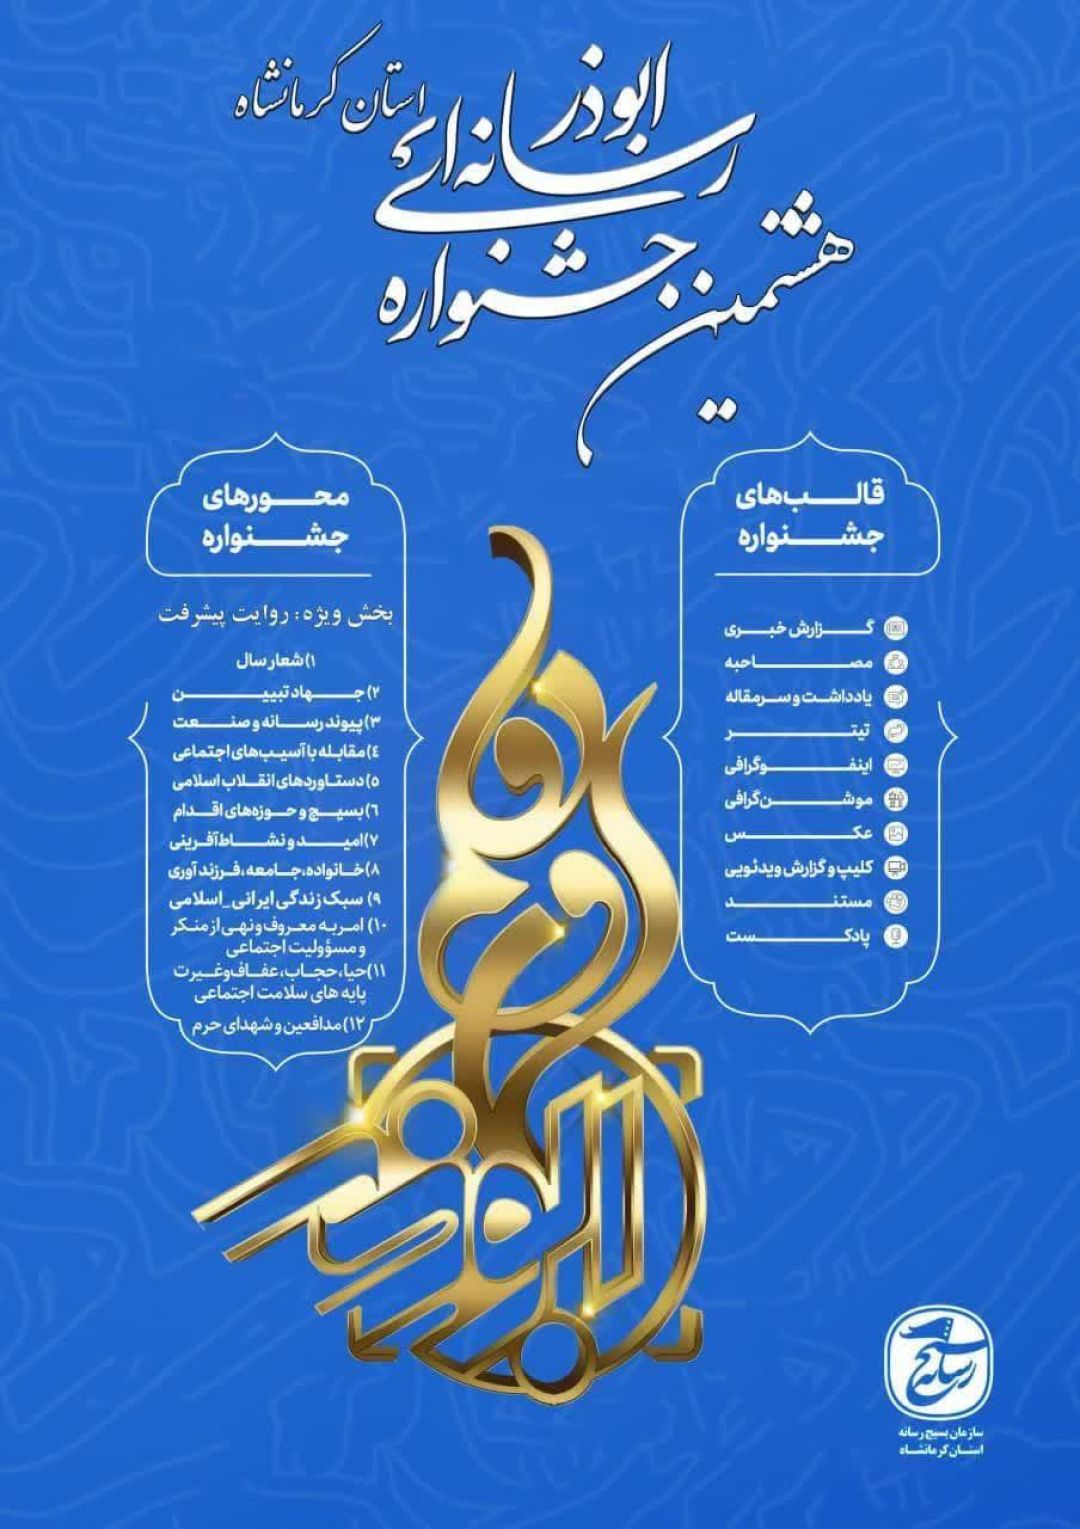 هشتمین جشنواره
رسانه‌ای ابوذر
استان کرمانشاه
قالب‌های
جشنواره
گزارش خبری
مصاحبه
یادداشت و سرمقاله
تیتر
اینفوگرافی
موشن‌گرافی
عکس
کلیپ و گزارش ویدئویی
مستند
پادکست
محورهای
جشنواره
بخش ویژه: روایت پیشرفت
۱) شعار سال
۲) جهاد تبیین
۳) پیوند رسانه و صنعت
٤) مقابله با آسیب‌های اجتماعی
٥) دستاوردهای انقلاب اسلامی
٦) بسیج و حوزه‌های اقدام
۷) امید و نشاط‌آفرینی
۸) خانواده، جامعه، فرزندآوری
۹) سبک زندگی ایرانی_اسلامی
۱۰) امر به معروف و نهی از منکر
و مسؤولیت اجتماعی
۱۱) حیا، حجاب، عفاف وغیرت
پایه های سلامت اجتماعی
۱۲) مدافعین و شهدای حرم
ابوذر
بسیج
رسانه
سازمان بسیج رسانه
استان کرمانشاه